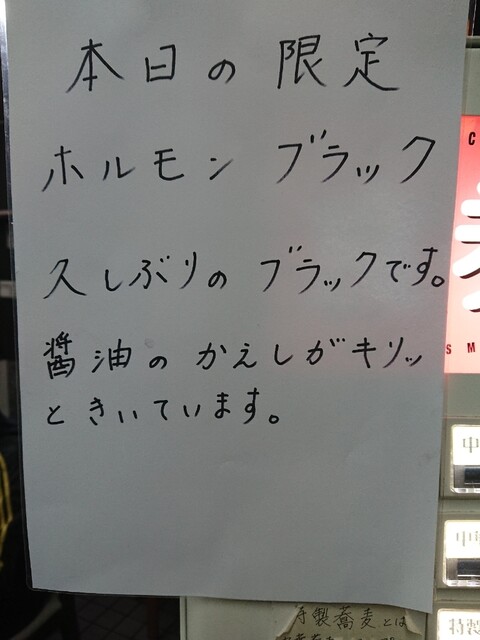 本日の限定
ホルモン ブラック
久しぶりの ブラックです。
醤油の かえしがキリッ
ときいています。
C
S M
中
中
特製
特製蕎麦とは